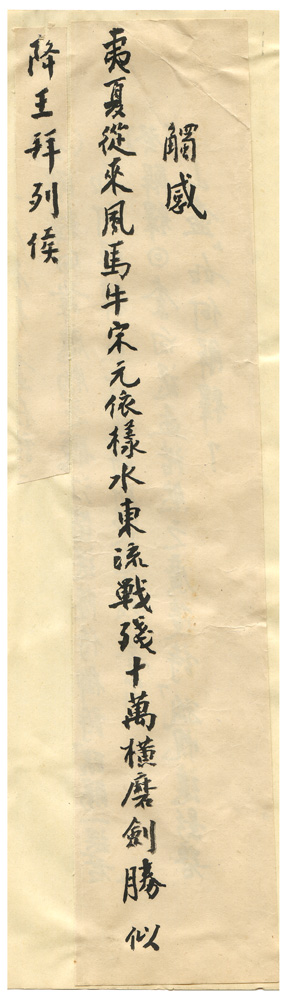 觸感
夷夏從來風馬牛宋元依樣水東流戰殘十萬橫磨劍勝似
降王拜列侯